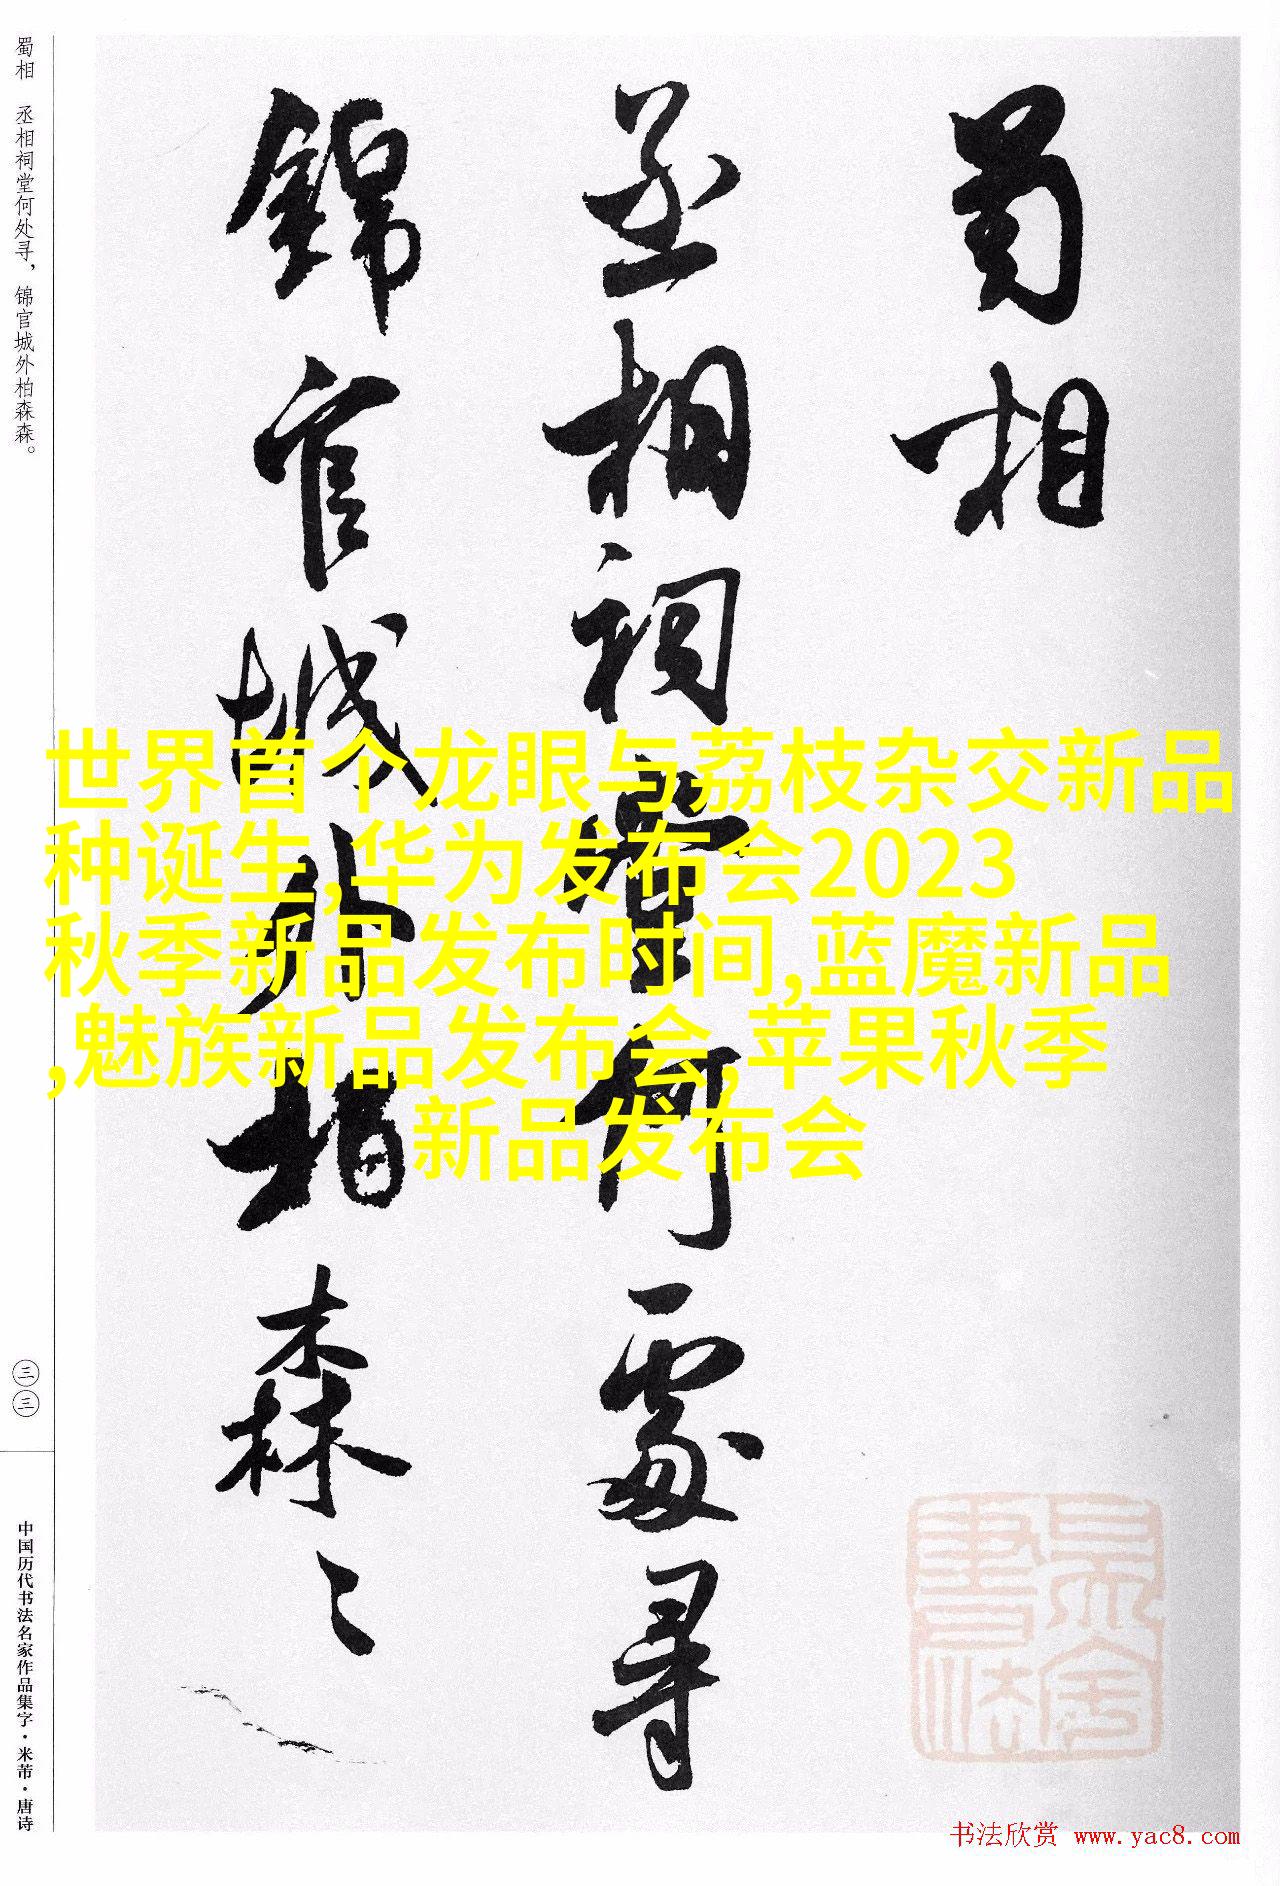 蜀相
丞相祠堂何處尋
錦官城外柏森々
蜀相　丞相祠堂何处寻，锦官城外柏森森。
三三
中国历代书法名家作品集字·米芾·唐诗
世界首个龙眼与荔枝杂交新品
种诞生,华为发布会2023
秋季新品发布时间,蓝魔新品
,魅族新品发布会,苹果秋季
新品发布会
书法欣赏 www.yac8.com